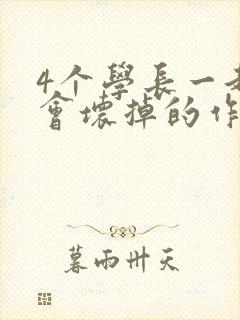 4个學長一
會壞掉的作
暮雨卅天